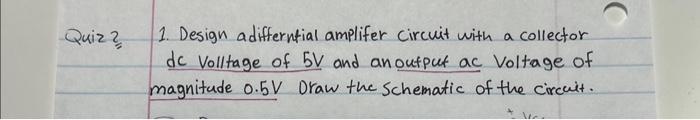 Quiz 2 1. Design a differntial amplifer circuit with a collector
dc Volltage of 5V and an output ac Voltage of
magnitude 0.5V Draw the Schematic of the circuit.